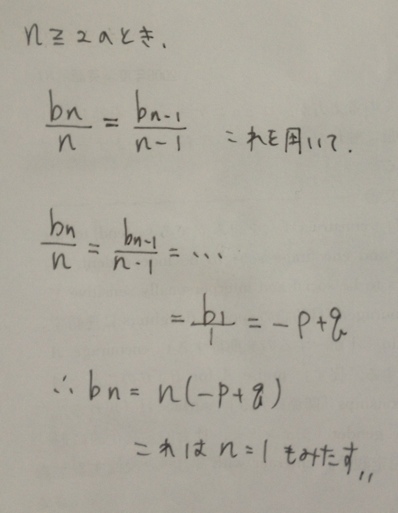 n≧2のとき、
bn/n = bn-1/n-1 これを用いて.
bn/n = bn-1/n-1 = ...
= b1/1 = -p+q
∴ bn = n(-p+q)
これは n=1 もみたす,,